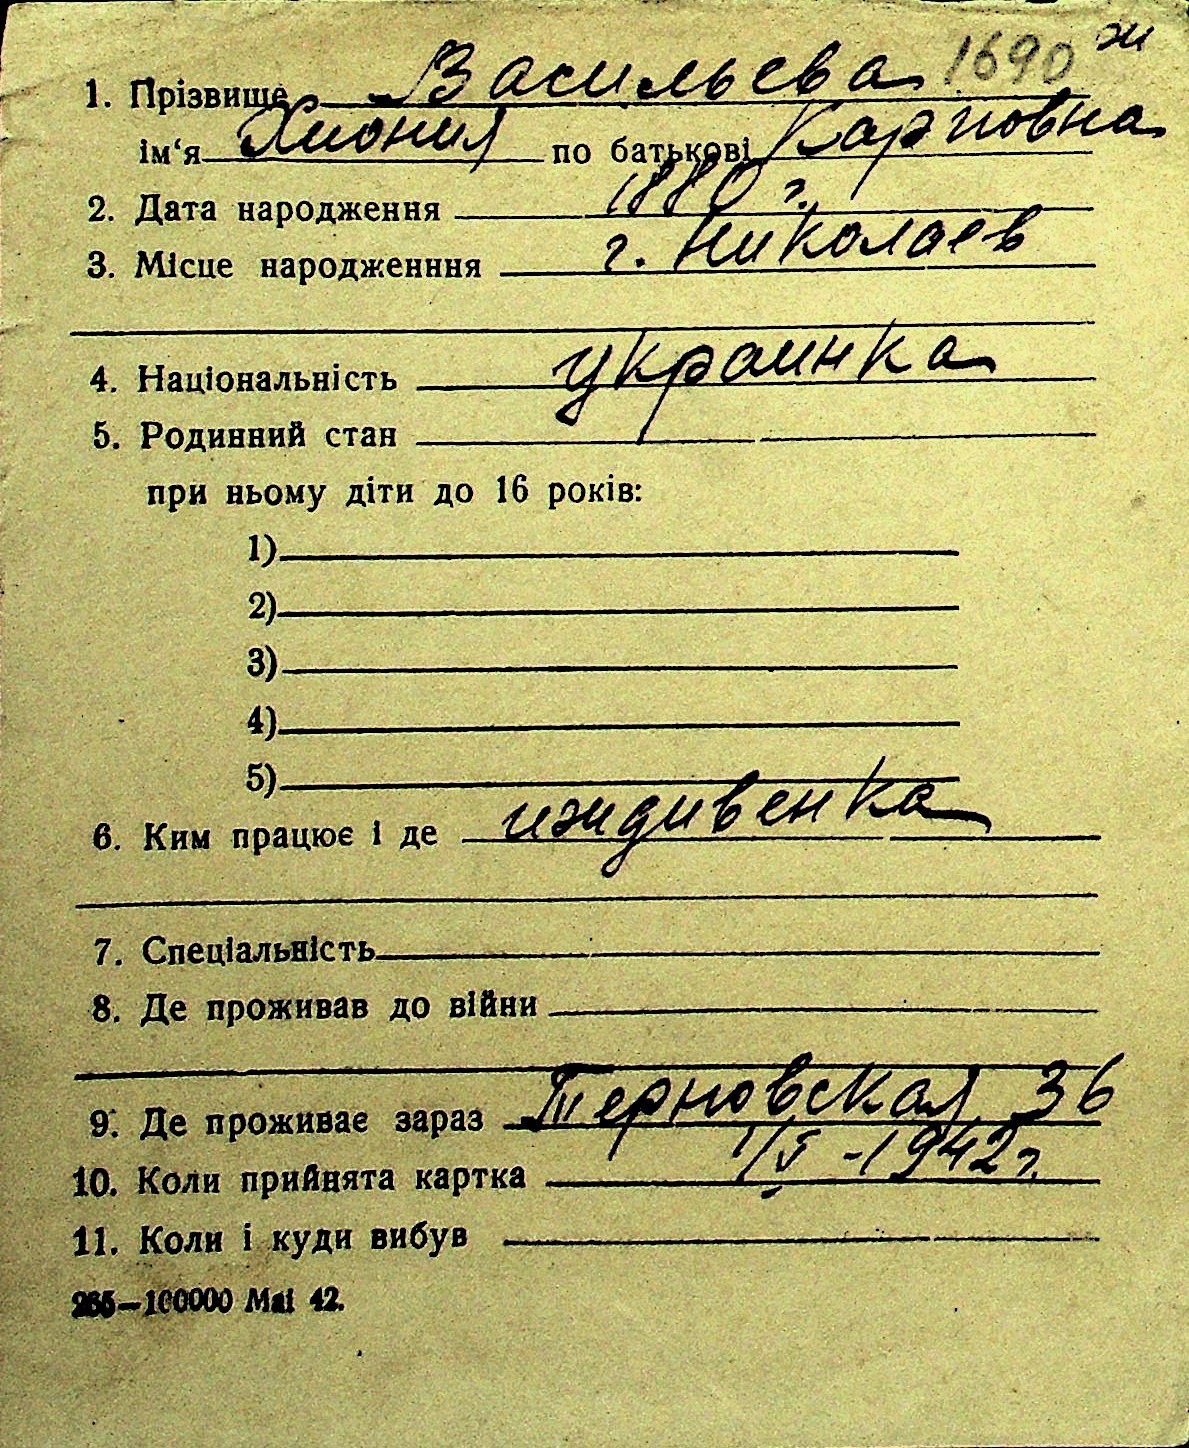 1. Прізвище Васильева 1690 ж
ім‘я Хиония по батькові Карповна
2. Дата народження 1880 г.
3. Місце народженння г. Николаев
4. Національність украинка
5. Родинний стан
при ньому діти до 16 років:
1)
2)
3)
4)
5)
6. Ким працює і де иждивенка
7. Спеціальність
8. Де проживав до війни
9. Де проживає зараз Терновская 36
10. Коли прийнята картка 1/V -1942 г.
11. Коли і куди вибув
265—100000 Маі 42.